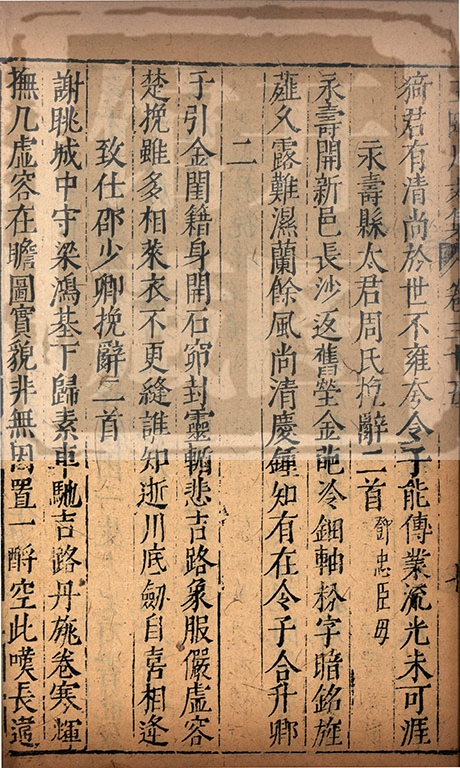 猗君有清尚於世不雍夸令子能傳業流光未可涯
永壽縣太君周氏挽辭二首 鄧忠臣母
永壽開新邑長沙返舊塋金葩泠鈿軸粉字暗銘旌
薤久露難濕蘭餘風尚清慶鍾知有在令子合升卿
二
子引金閨籍身開石窌封靈輀悲吉路象服儼虛容
楚挽雖多相萊衣不更縫誰知逝川底劒自喜相逢
致仕邵少卿挽辭二首
謝眺城中守梁鴻基下歸素車馳吉路丹旐卷寒輝
撫几虛容在瞻圖實貌非無因置一酹空此嘆長違